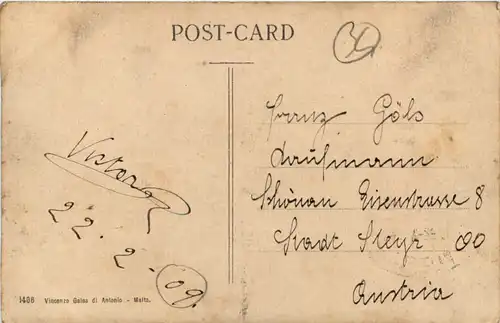 POST-CARD
Franz Göls
Kaufmann
Schönau Eisenstrasse 8
Stadt Steyr OÖ
Austria
Victor
22.2.09.
1486 Vincenzo Galea di Antonio - Malta.